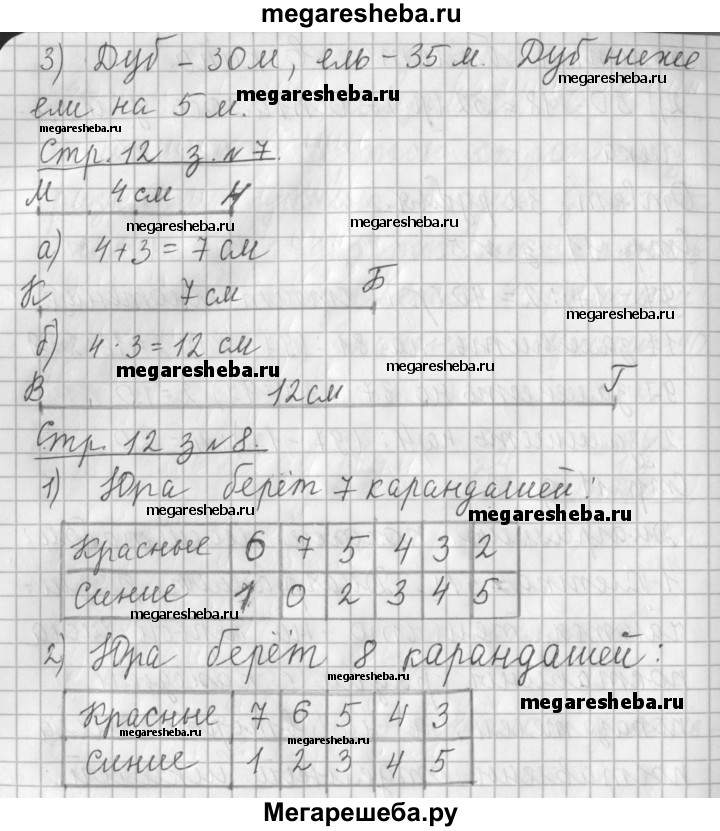 megaresheba.ru
3) Дуб – 30 м, ель – 35 м. Дуб ниже
megaresheba.ru
megaresheba.ru
ели на 5 м.
megaresheba.ru
Стр. 12 з. №7.
М 4 см Н
megaresheba.ru megaresheba.ru
а) 4+3=7 см
К 7 см Б
megaresheba.ru
б) 4·3=12 см
megaresheba.ru megaresheba.ru
В 12 см Г
Стр. 12 з №8.
1) Юра берёт 7 карандашей:
megaresheba.ru megaresheba.ru
Красные 6 7 5 4 3 2
Синие 1 0 2 3 4 5
megaresheba.ru
2) Юра берёт 8 карандашей:
megaresheba.ru
megaresheba.ru
Красные 7 6 5 4 3
megaresheba.ru megaresheba.ru
Синие 1 2 3 4 5
Мегарешеба.ру